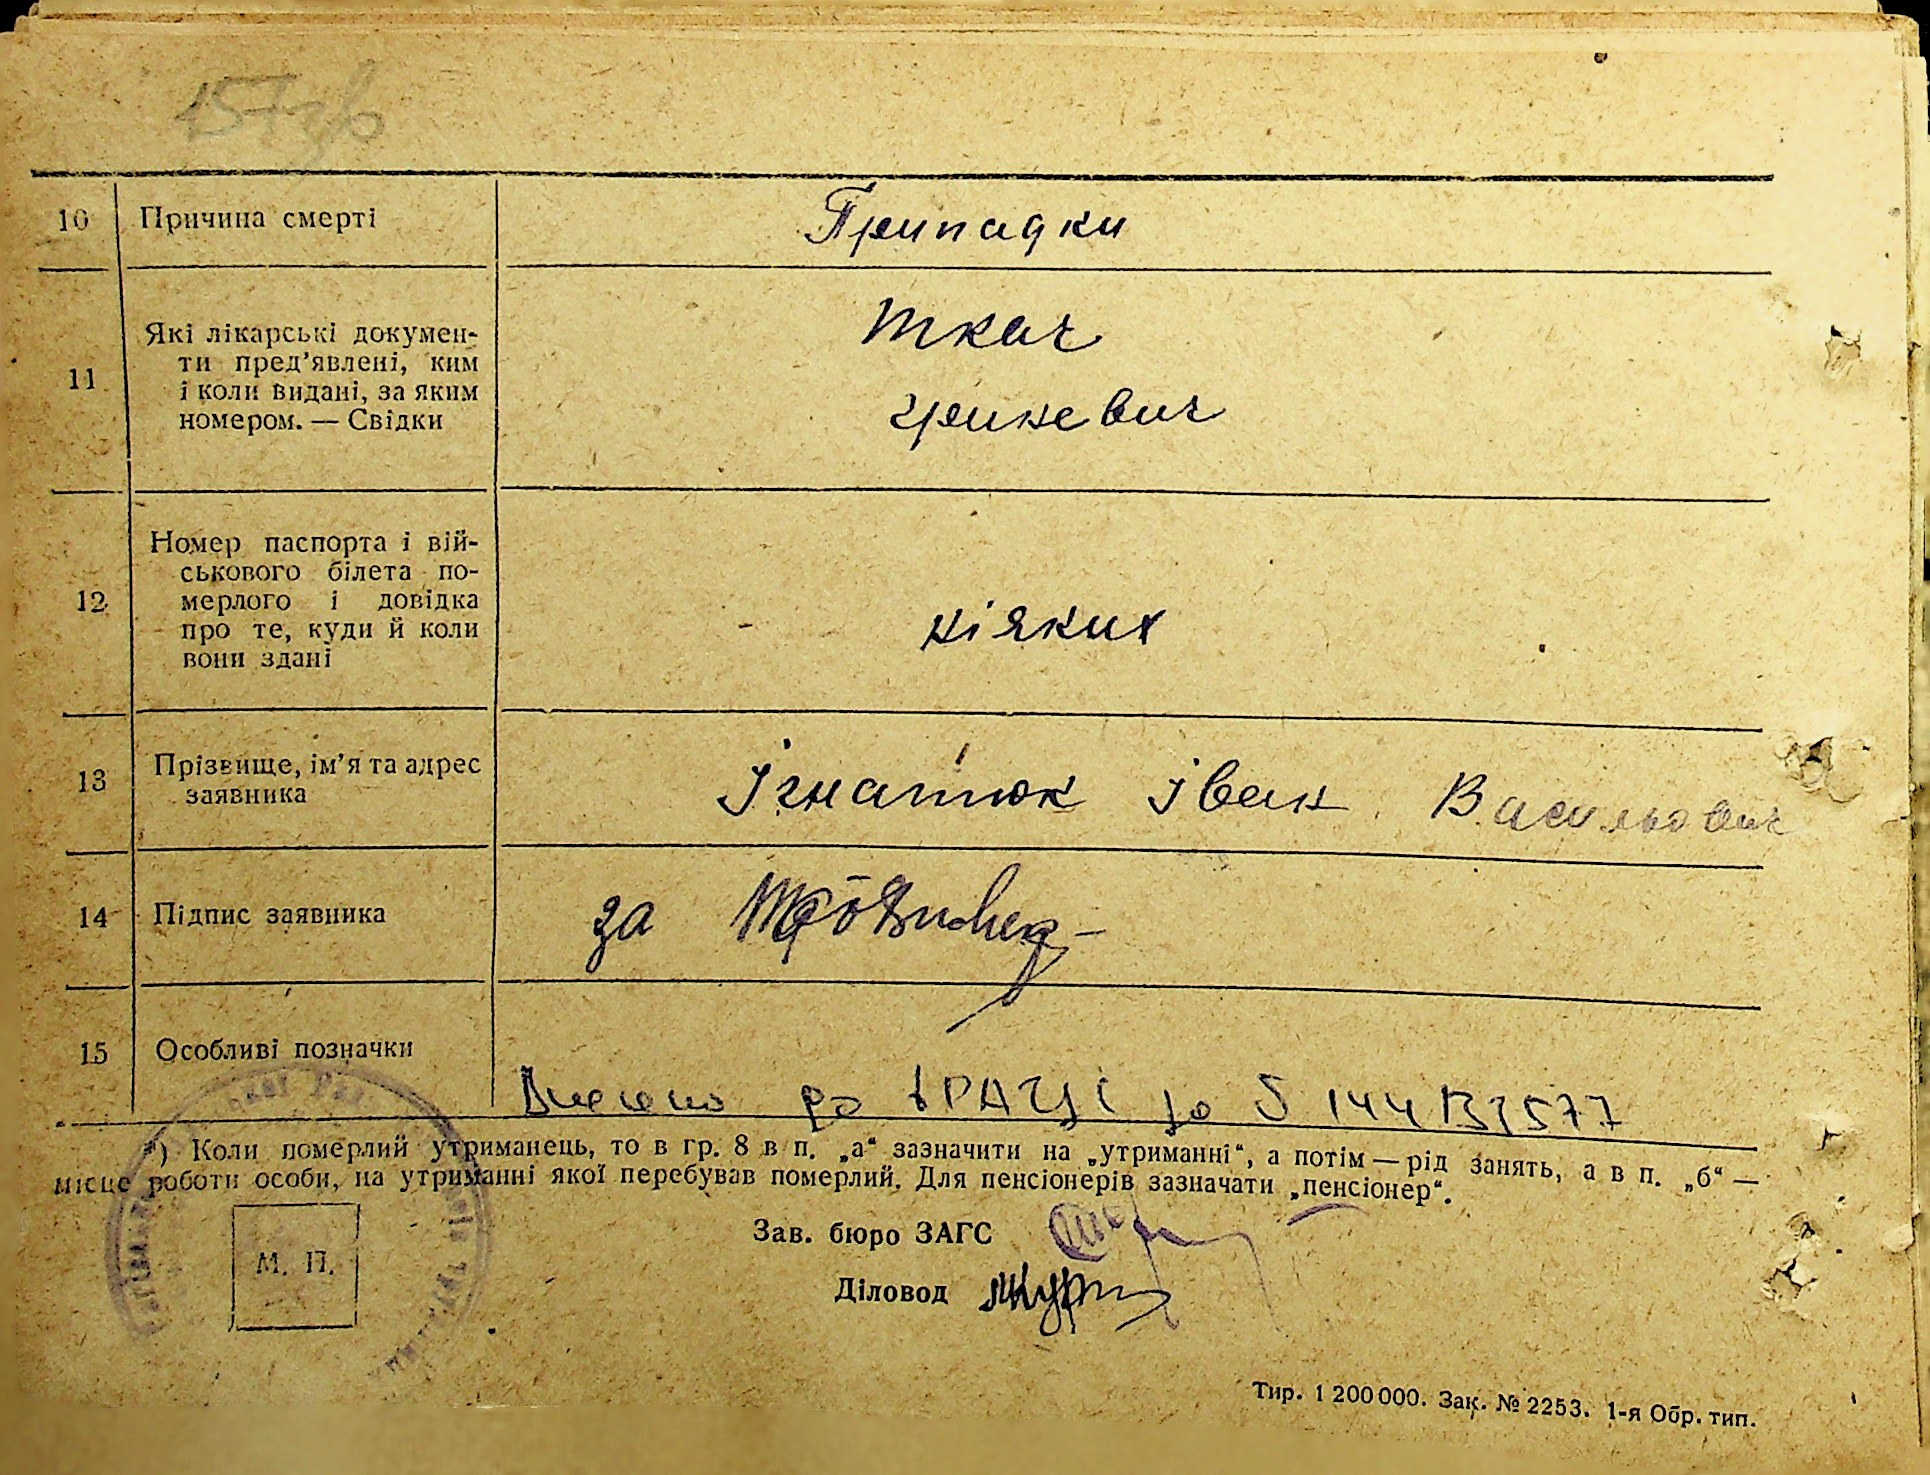 157зв
10 Причина смерті Припадки
11 Які лікарські докумен-
ти пред’явлені, ким
і коли видані, за яким
номером. — Свідки
Ткач
Гриневич
12 Номер паспорта і вій-
ськового білета по-
мерлого і довідка
про те, куди й коли
вони здані
ніяких
13 Прізвище, ім’я та адрес
заявника
Ігнатюк Іван Васильович
14 Підпис заявника за
15 Особливі позначки
Внесено до ДРАЦС за
*) Коли померлий утриманець, то в гр. 8 в п. „а“ зазначити на „утриманні“, а потім — рід занять, а в п. „б“ —
місце роботи особи, на утриманні якої перебував померлий. Для пенсіонерів зазначати „пенсіонер“.
Зав. бюро ЗАГС
М. П.
Діловод
Тир. 1 200 000. Зак. № 2253. 1-я Обр. тип.